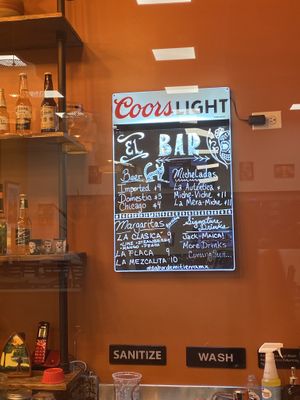 Coors LIGHT
EL BAR
Beer
Imported $4
Domestic $3
Chicago $4
Micheladas
La Autentica
Miche-Viche $11
La Mera-Miche $11
Margaritas
LA CLASICA 9
LA FLACA 9
LA MEZCALITA 10
Signature Drinks
Jack-Maica!
More Drinks
Coming Soon...
SANITIZE
WASH